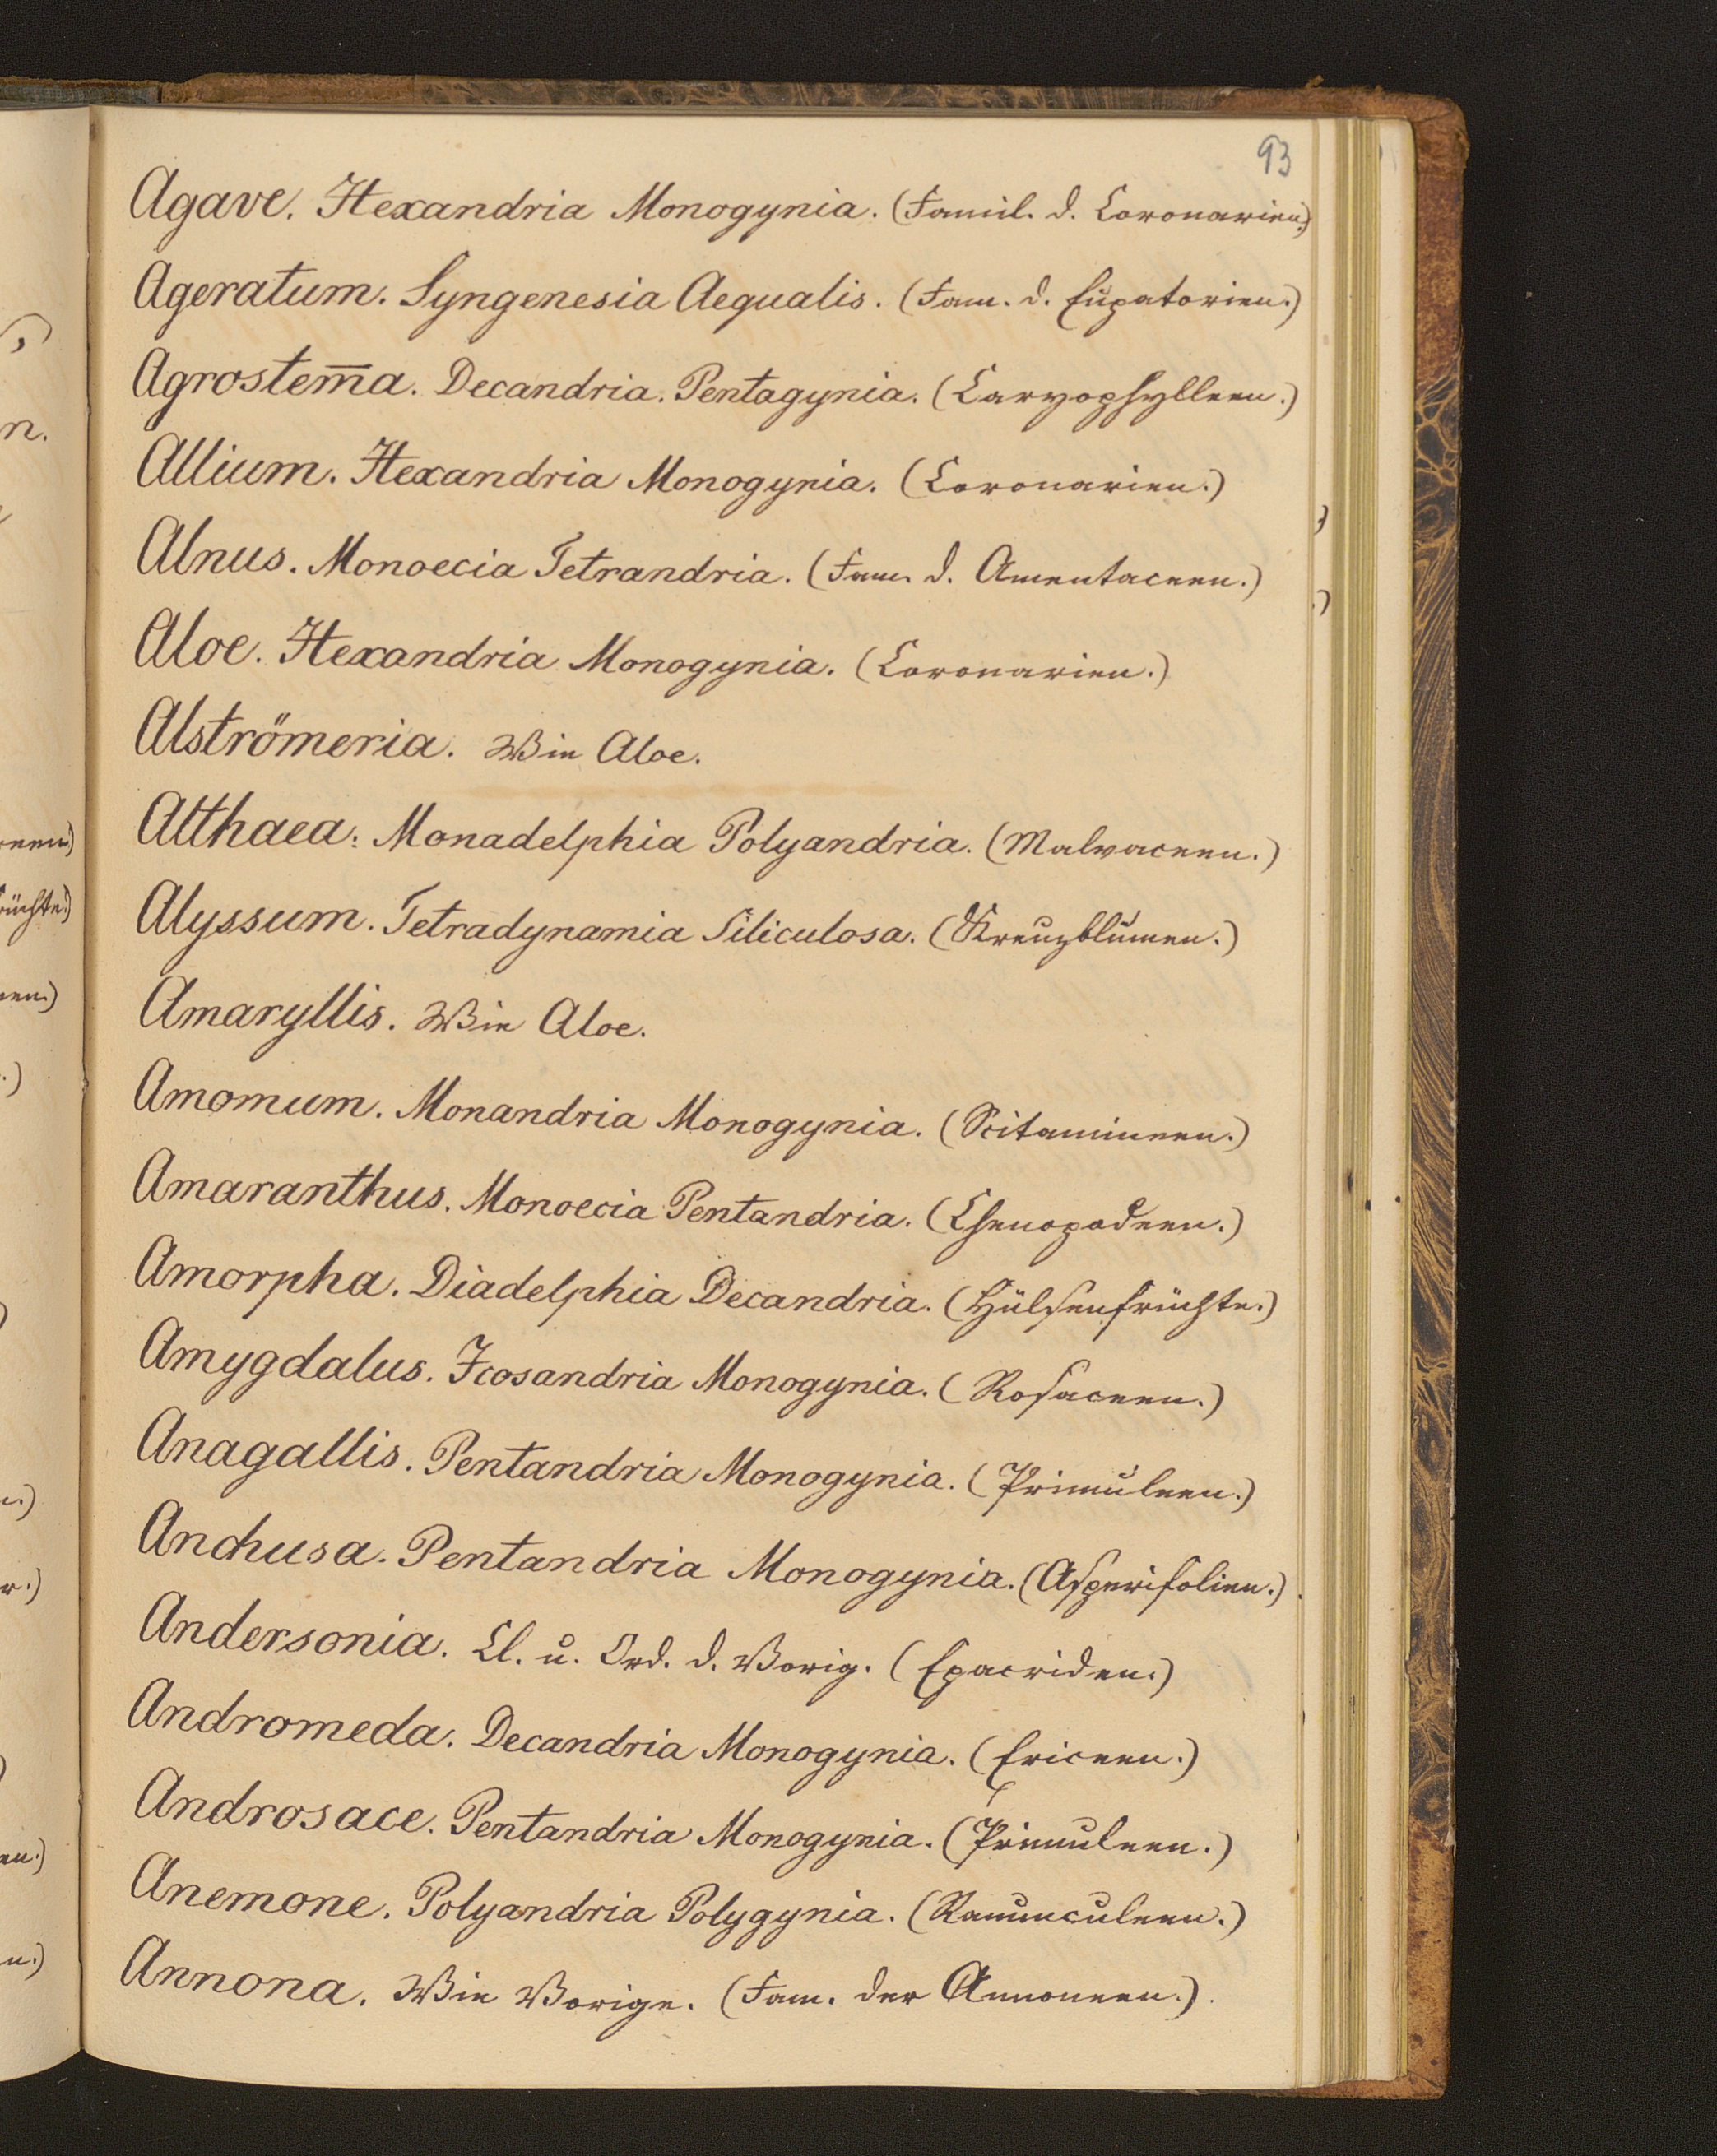 93
Agave. Hexandria Monogynia. (Famil. d. Coronarien.)
Ageratum. Syngenesia Aequalis. (Fam. d. Eupatorien.)
Agrostem̅a. Decandria. Pentagynia. (Caryophylleen.)
Allium. Hexandria Monogynia. (Coronarien.)
Alnus. Monoecia Tetrandria. (Fam. d. Amentaceen.)
Aloe. Hexandria Monogynia. (Coronarien.)
Alströmeria. Wie Aloe.
Althaea. Monadelphia Polyandria. (Malvaceen.)
Alyssum. Tetradynamia Siliculosa. (Kreuzblumen.)
Amaryllis. Wie Aloe.
Amomum. Monandria Monogynia. (Scitamineen.)
Amaranthus. Monoecia Pentandria. (Chenopodeen.)
Amorpha. Diadelphia Decandria. (Hülsenfrüchte.)
Amygdalus. Icosandria Monogynia. (Rosaceen.)
Anagallis. Pentandria Monogynia. (Primuleen.)
Anchusa. Pentandria Monogynia. (Asperifolien.)
Andersonia. Cl. u. Ord. d. Vorig. (Epacriden.)
Andromeda. Decandria Monogynia. (Ericeen.)
Androsace. Pentandria Monogynia. (Primuleen.)
Anemone. Polyandria Polygynia. (Ranunculeen.)
Annona. Wie Vorige. (Fam. der Annoneen.)